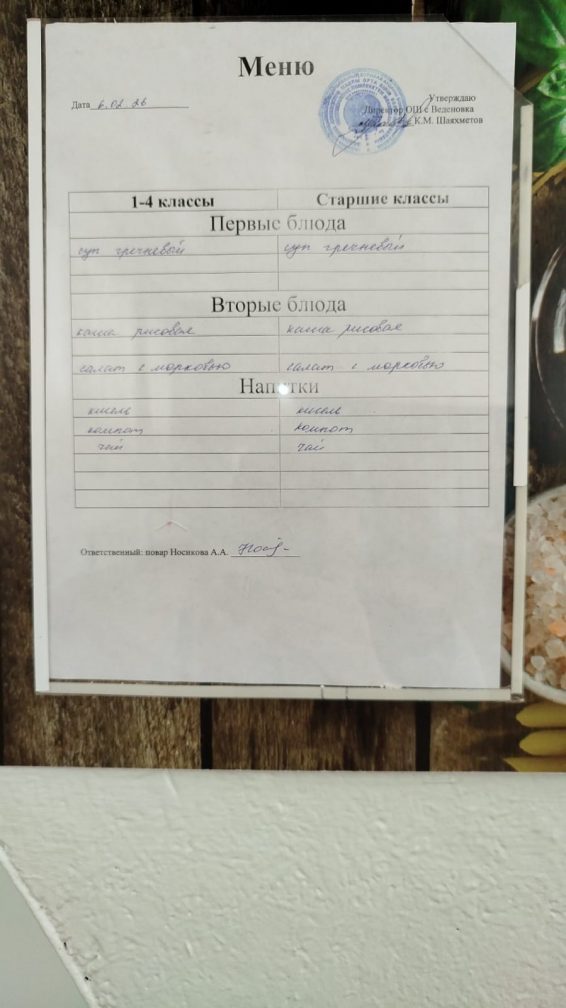 Меню
Дата 6.02.26
Утверждаю
Директор ОШ с Веденовка
К.М. Шаяхметов
1-4 классы Старшие классы
Первые блюда
суп гречневый суп гречневый
Вторые блюда
каша рисовая каша рисовая
салат с морковью салат с морковью
Напитки
кисель кисель
компот компот
чай чай
Ответственный: повар Носикова А.А.